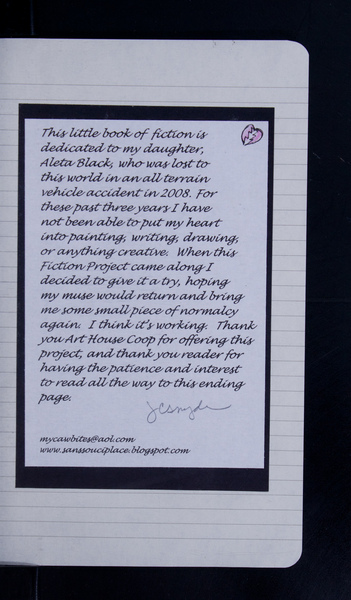 This little book of fiction is
dedicated to my daughter,
Aleta Black, who was lost to
this world in an all terrain
vehicle accident in 2008. For
these past three years I have
not been able to put my heart
into painting, writing, drawing,
or anything creative. When this
Fiction Project came along I
decided to give it a try, hoping
my muse would return and bring
me some small piece of normalcy
again. I think it's working. Thank
you Art House Coop for offering this
project, and thank you reader for
having the patience and interest
to read all the way to this ending
page.
jcsnyder
mycawbites@aol.com
www.sanssouciplace.blogspot.com